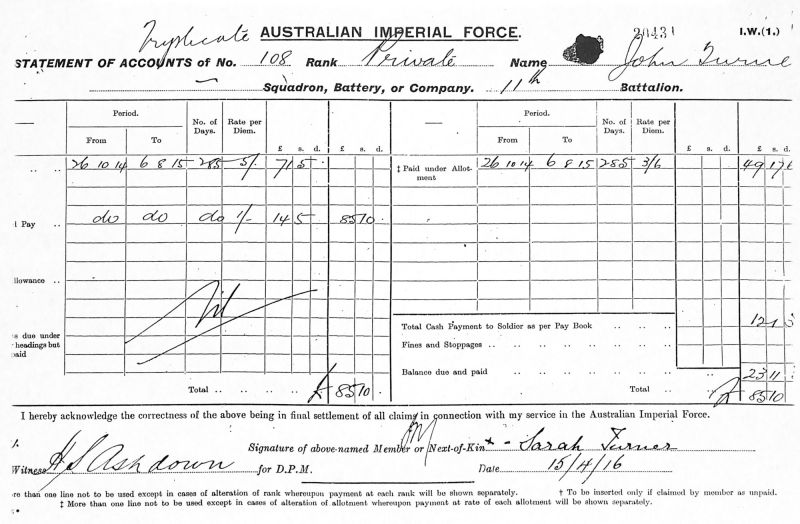 Tryplicate AUSTRALIAN IMPERIAL FORCE. 20431 I.W.(1.)
STATEMENT OF ACCOUNTS of No. 108 Rank Private Name John Turne
Squadron, Battery, or Company. 11th Battalion.
Period. No. of Days. Rate per Diem. Period. No. of Days. Rate per Diem.
From To £ s. d. £ s. d. From To £ s. d. £ s. d.
26 10 14 6 8 15 285 5/- 71 5 ‡ Paid under Allot- 26 10 14 6 8 15 285 3/6 49 17 6
ment
l Pay .. do do do 1/- 14 5 85 10
llowance ..
Nil
Total Cash Payment to Soldier as per Pay Book .. .. .. 12 1
s due under
headings but Fines and Stoppages .. .. .. .. ..
paid
Balance due and paid .. .. 23 11
Total .. £ 85 10 Total .. £ 85 10
I hereby acknowledge the correctness of the above being in final settlement of all claims in connection with my service in the Australian Imperial Force.
Signature of above-named Member or Next-of-Kin Sarah Turner
Witness H S Ashdown for D.P.M. Date 15/4/16
re than one line not to be used except in cases of alteration of rank whereupon payment at each rank will be shown separately. † To be inserted only if claimed by member as unpaid.
‡ More than one line not to be used except in cases of alteration of allotment whereupon payment at rate of each allotment will be shown separately.